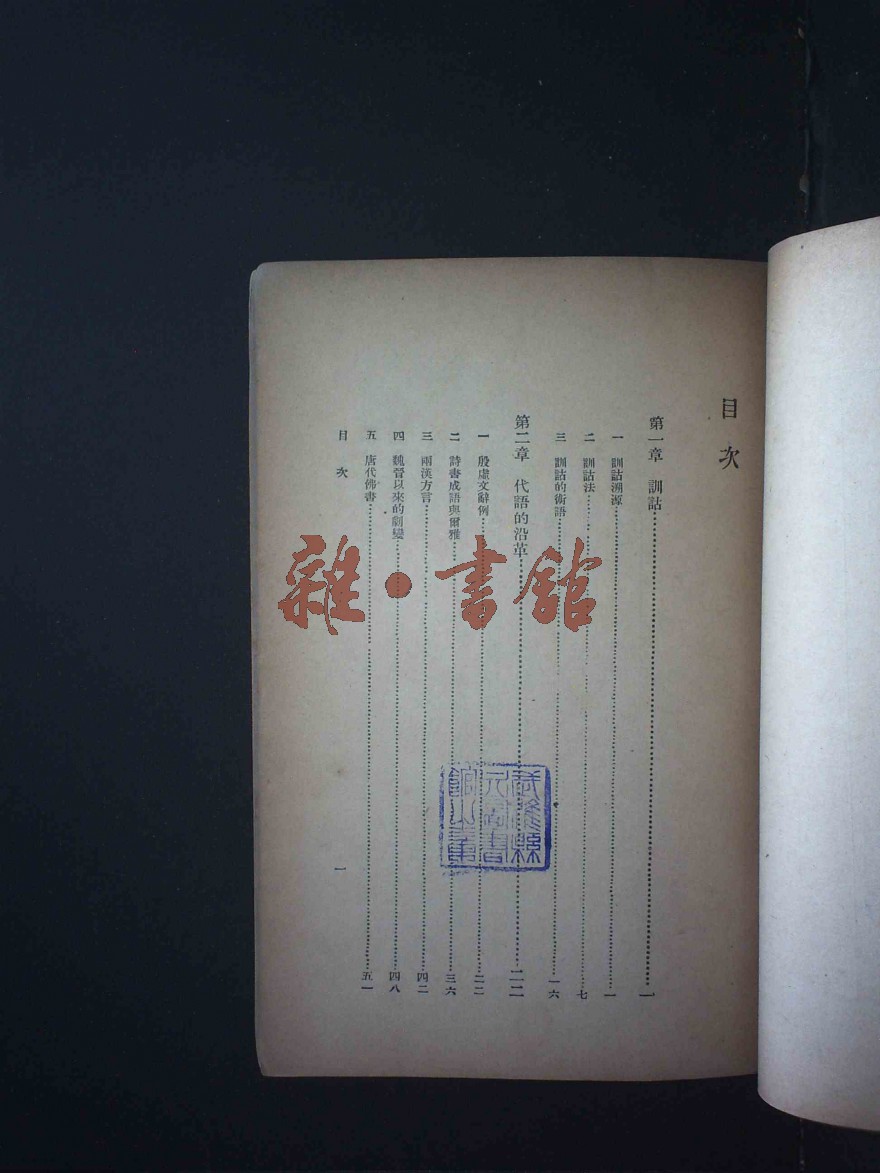 目次
第一章 訓詁……一
一 訓詁溯源……一
二 訓詁法……七
三 訓詁的術語……一六
第二章 代語的沿革……二二
一 殷虛文辭例……二二
二 詩書成語與爾雅……三六
三 兩漢方言……四二
四 魏晉以來的劇變……四八
五 唐代佛書……五一
目次 一
雜·書館